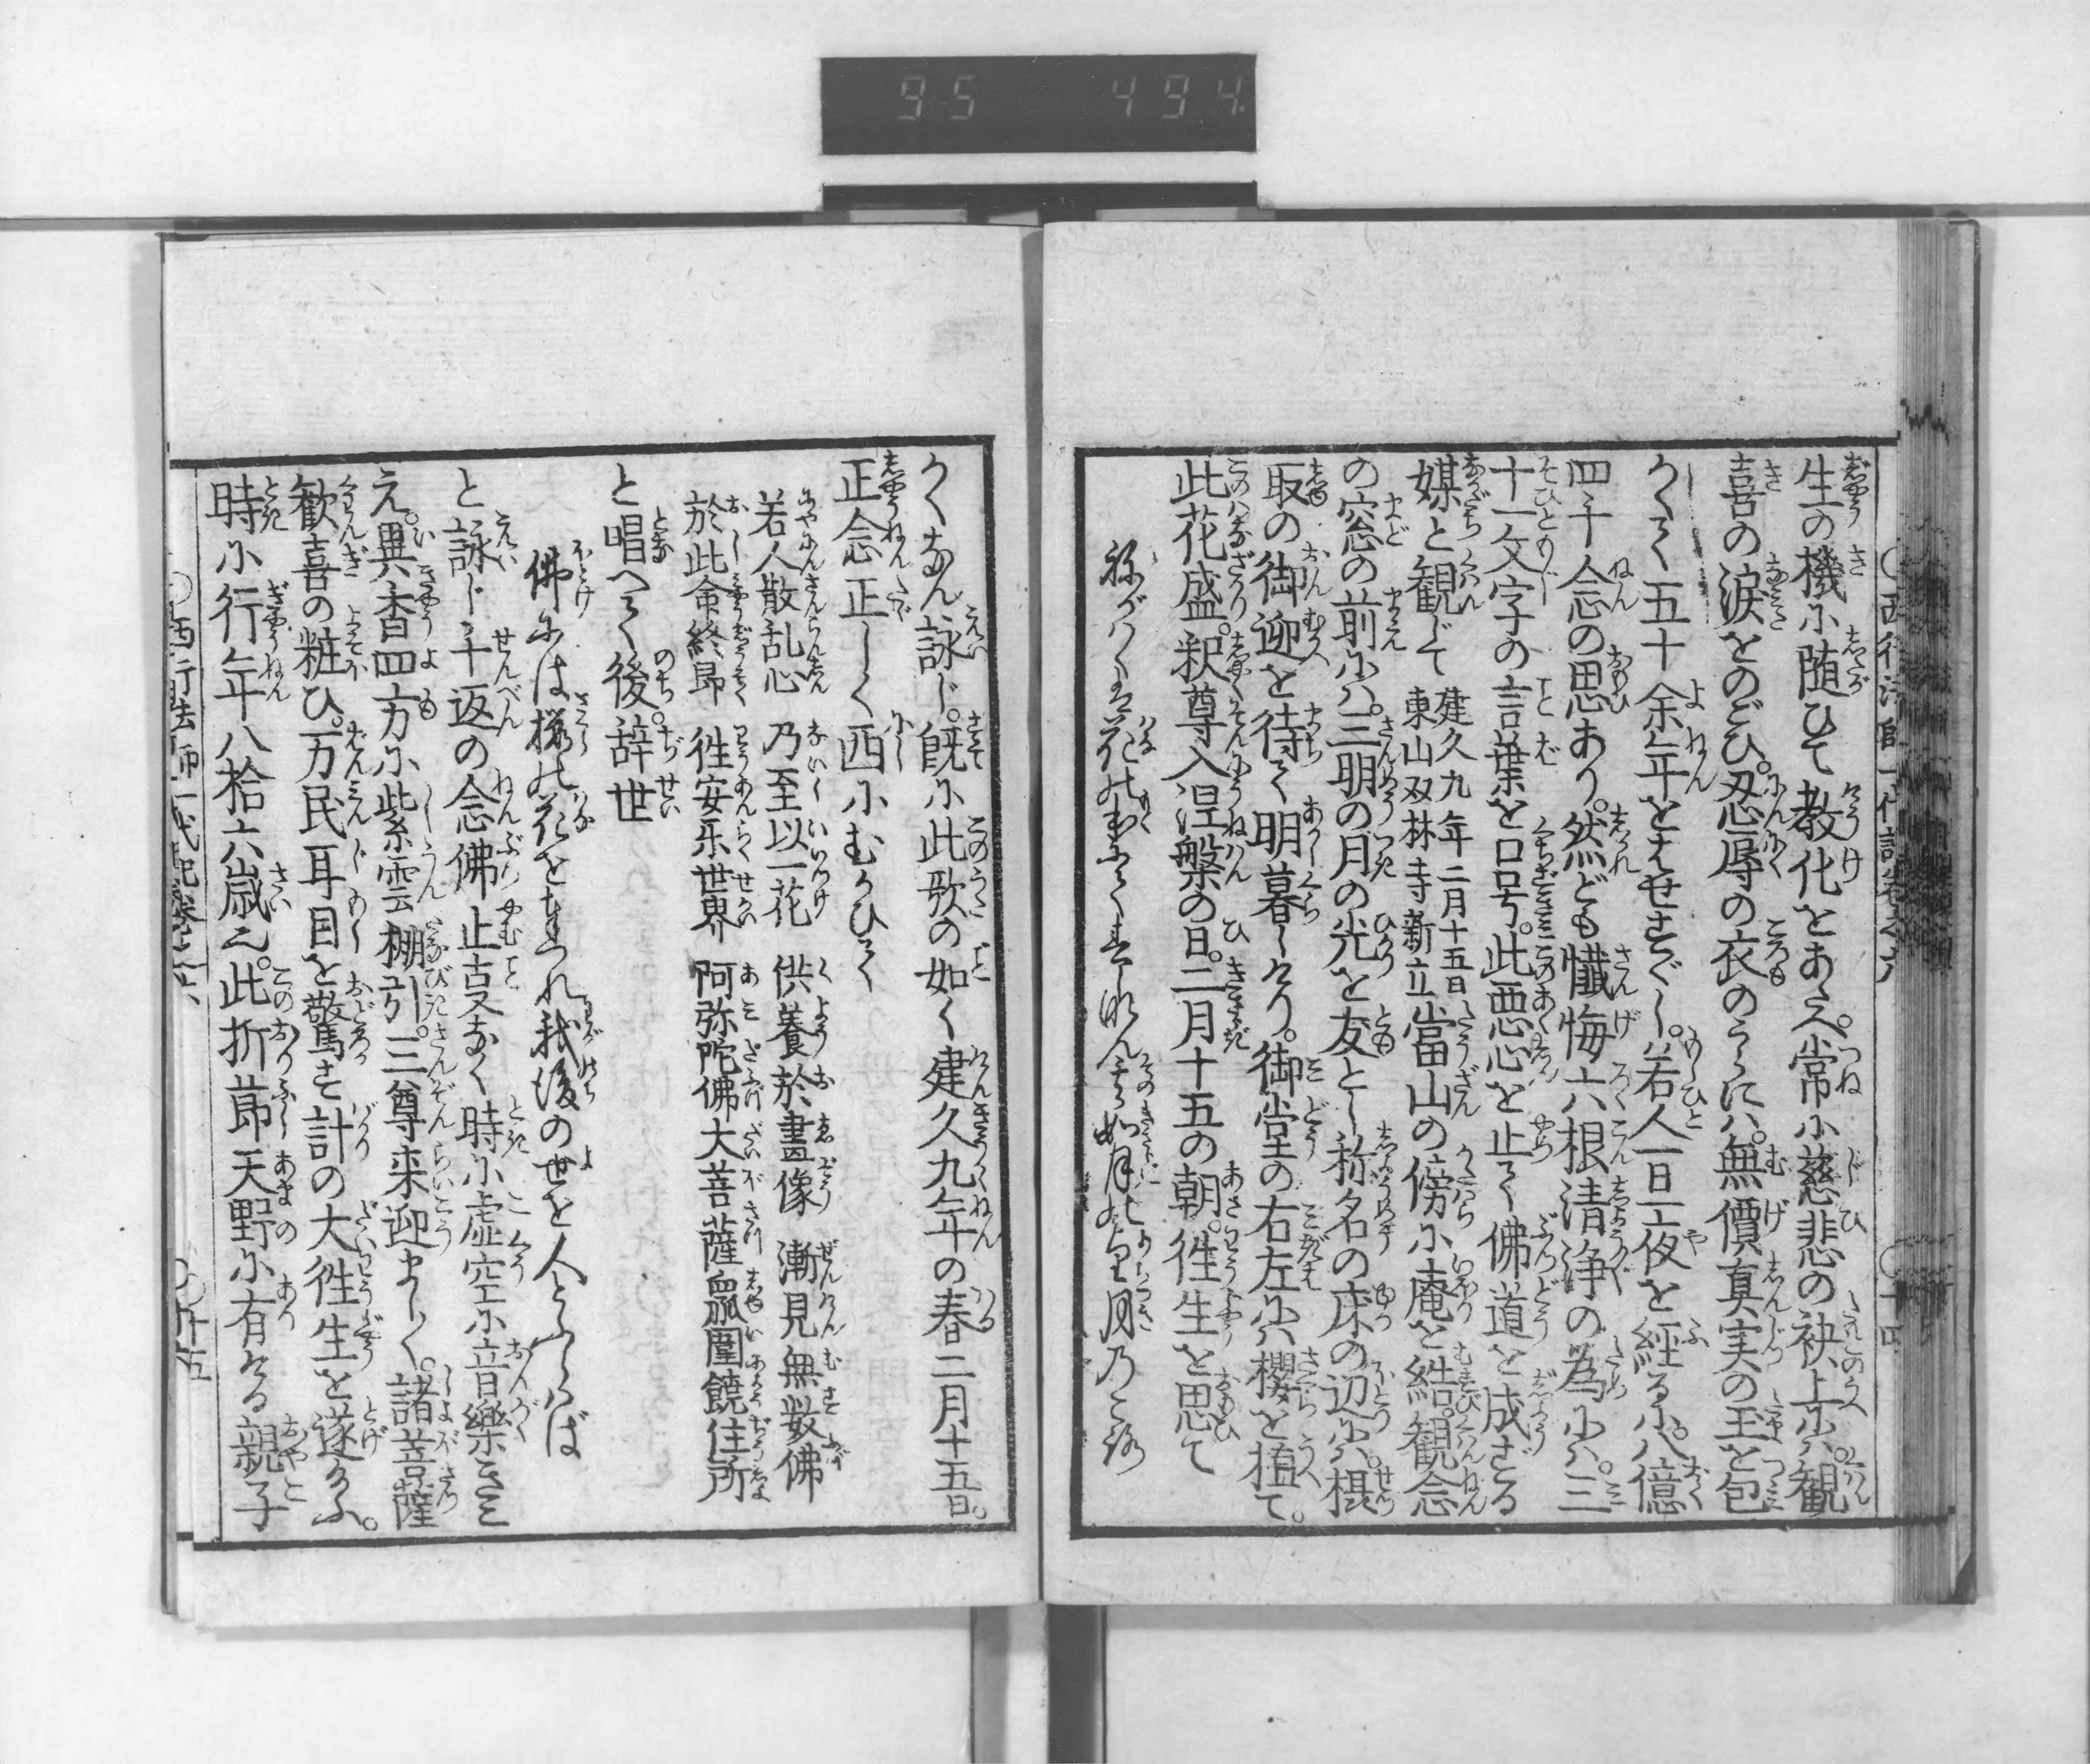 95 494
生の機に随ひて教化をあたへ。常に慈悲の袂上には。観
喜の涙をのごひ。忍辱の衣のうらには。無價真実の玉を包
かくて五十余年をすぐ。若人一日一夜を経るに。八億
四千念の思あり。然ども懺悔六根清浄の為には。三
十一文字の言葉を口号。此悪心を止て佛道を成ざる
媒と観じて 建久九年二月十五日 東山双林寺新立 當山の傍に庵を結。観念
の窓の前には。三明の月の光を友とし称名の床の辺には。摂
取の御迎を待て明暮しけり。御堂の右左には櫻を植て。
此花盛。釈尊入涅槃の日。二月十五の朝。徃生を思て
ねがはくは花のもとにて春しなん其如月の望月のころ
かくなん詠じ。既に此歌の如く建久九年の春二月十五日。
正念正しく西にむかひて
若人散乱心 乃至以一花 供養於畫像 漸見無数佛
於此命終昴 徃安乐世界 阿弥陀佛大菩薩衆圍饒住所
と唱へて後。辞世
佛には桜の花をたてまつれ我後の世を人とふらはば
と詠じ千返の念佛止支なく時に虚空に音樂きこ
え。異香四方に紫雲棚引。三尊来迎まして。諸菩薩
歓喜の粧ひ。万民耳目を驚す計の大徃生を遂給ふ。
時に行年八拾六歳也。此折節天野に有ける親子
西行法師一代記巻之六 十五